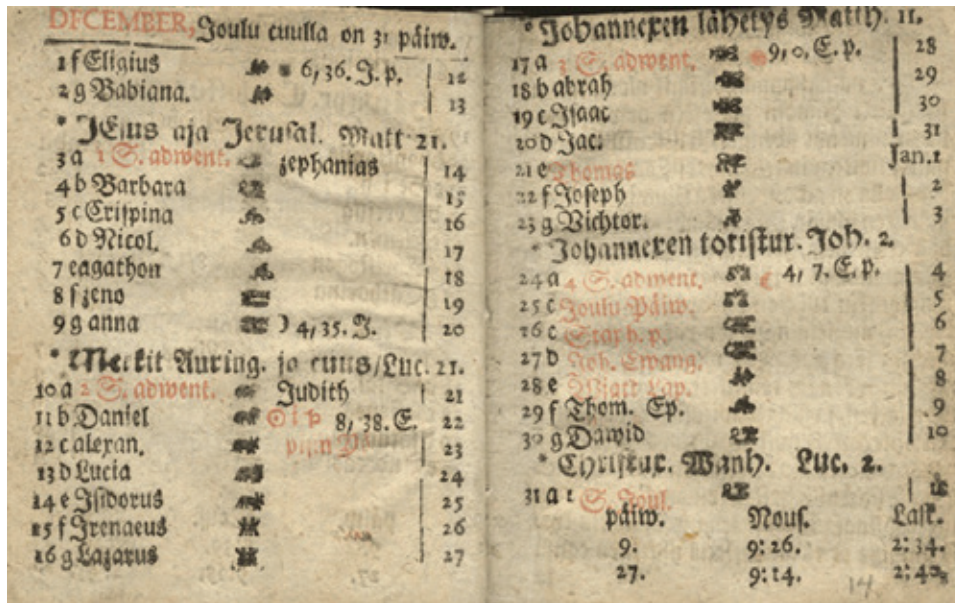 DECEMBER, Joulu cuulla on 31 päiw.
1 f Eligius 6, 36. J. p. 12
2 g Babiana. 13
* JEsus aja Jerusal. Matt 21.
3 a 1 S. adwent. zephanias 14
4 b Barbara 15
5 c Crispina 16
6 d Nicol. 17
7 e agathon 18
8 f zeno 19
9 g anna ☽ 4, 35. J. 20
* Merkit Auring. ja cuus/Luc. 21.
10 a 2 S. adwent. Judith 21
11 b Daniel ☉ i 8, 38. E. 22
12 c alexan. 23
13 d Lucia 24
14 e Isidorus 25
15 f Irenaeus 26
16 g Lazarus 27
* Johannexen lähetys Matth. 11.
17 a 3 S. adwent. 9, 0, E. p. 28
18 b abrah 29
19 c Isaac 30
20 d Jac. 31
21 e Thomas Jan. 1
22 f Joseph 2
23 g Vichtor. 3
* Johannexen toristur. Joh. 2.
24 a 4 S. adwent. ☾ 4, 7. E. p. 4
25 c Joulu Päiw. 5
26 c Staph. p. 6
27 d Joh. Ewang. 7
28 e Wiatt. Lap. 8
29 f Thom. Ep. 9
30 g Dawid 10
* Christux. Wanh. Luc. 2.
31 a 1 S. Joul.
päiw. Nous. Lask.
9. 9: 26. 2: 34.
27. 9: 14. 2:
14